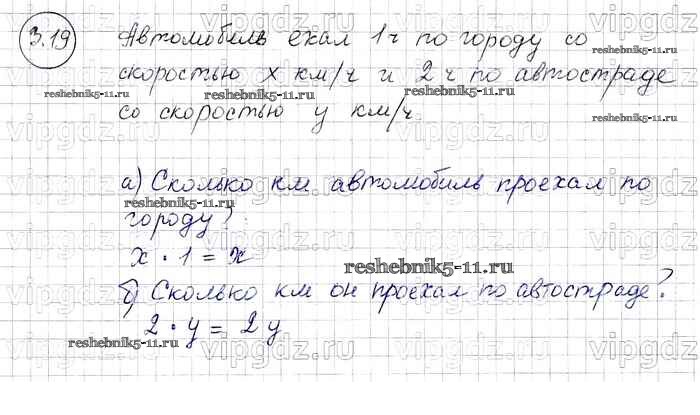 3.19 Автомобиль ехал 1ч по городу со
скоростью x км/ч и 2ч по автостраде
reshebnik5-11.ru reshebnik5-11.ru reshebnik5-11.ru
со скоростью y км/ч.
reshebnik5-11.ru
vipgdz.ru
а) Сколько км автомобиль проехал по
reshebnik5-11.ru
городу?
x · 1 = x
reshebnik5-11.ru
б) Сколько км он проехал по автостраде?
2 · y = 2y
reshebnik5-11.ru reshebnik5-11.ru
vipgdz.ru